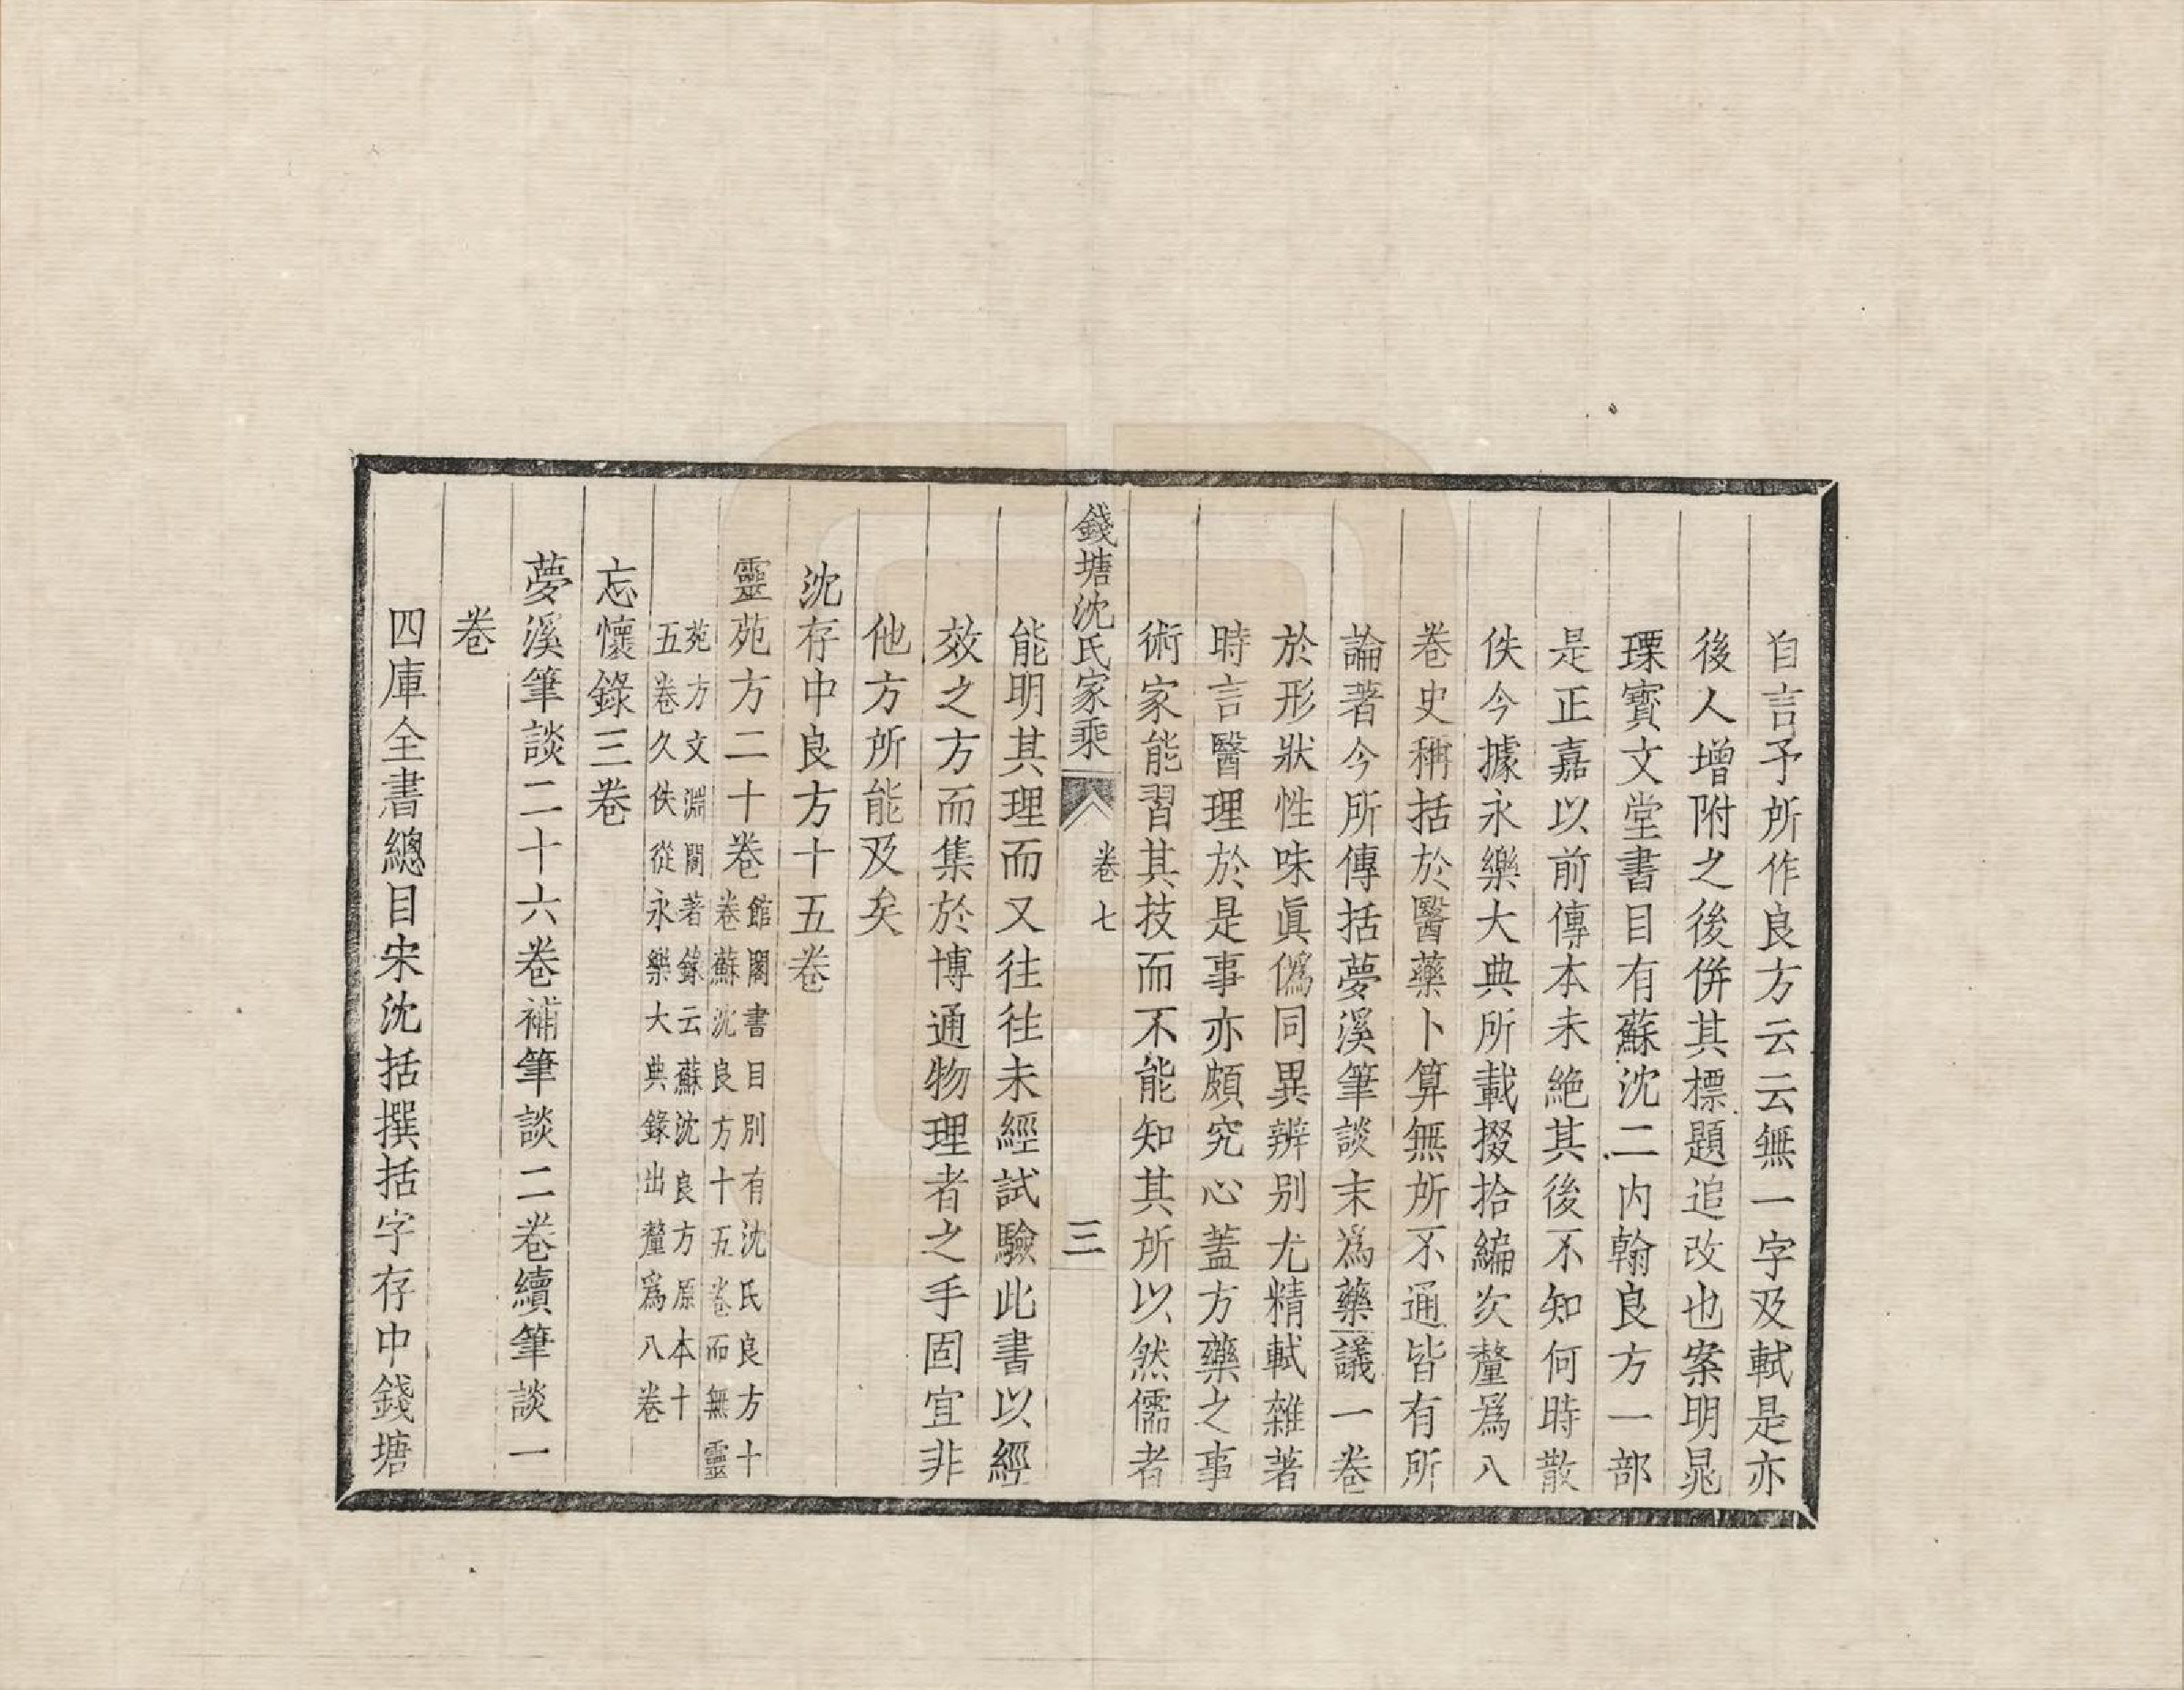 自言予所作良方云云無一字及軾是亦
後人增附之後併其標題追改也案明晁
瑮寳文堂書目有蘇沈二内翰良方一部
是正嘉以前傳本未絶其後不知何時散
佚今據永樂大典所載掇拾編次釐爲八
卷史稱括於醫藥卜算無所不通皆有所
論著今所傳括夢溪筆談末爲藥議一卷
於形狀性味眞僞同異辨别尤精軾雜著
時言醫理於是事亦頗究心蓋方藥之事
術家能習其技而不能知其所以然儒者
錢塘沈氏家乘 卷七 三
能明其理而又往往未經試驗此書以經
效之方而集於博通物理者之手固宜非
他方所能及矣
沈存中良方十五卷
靈苑方二十卷
館閣書目别有沈氏良方十
卷蘇沈良方十五卷而無靈
苑方文淵閣著錄云蘇沈良方原本十
五卷久佚從永樂大典錄出釐爲八卷
忘懷錄三卷
夢溪筆談二十六卷補筆談二卷續筆談一
卷
四庫全書總目宋沈括撰括字存中錢塘